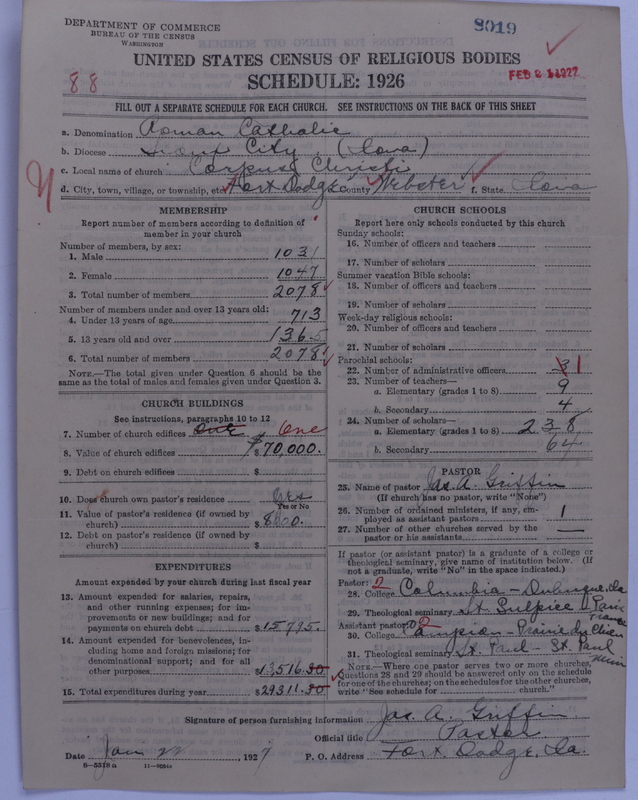 DEPARTMENT OF COMMERCE
BUREAU OF THE CENSUS
WASHINGTON
8019
UNITED STATES CENSUS OF RELIGIOUS BODIES
FEB 2 1927
88
SCHEDULE: 1926
FILL OUT A SEPARATE SCHEDULE FOR EACH CHURCH. SEE INSTRUCTIONS ON THE BACK OF THIS SHEET
a. Denomination Roman Catholic
b. Diocese Sioux City (Iowa)
c. Local name of church Corpus Christi
d. City, town, village, or township, etc. Fort Dodge County Webster f. State Iowa
MEMBERSHIP
Report number of members according to definition of
member in your church
Number of members, by sex:
1. Male 1031
2. Female 1047
3. Total number of members 2078
Number of members under and over 13 years old:
4. Under 13 years of age 713
5. 13 years old and over 1365
6. Total number of members 2078
NOTE.—The total given under Question 6 should be the
same as the total of males and females given under Question 3.
CHURCH BUILDINGS
See instructions, paragraphs 10 to 12
7. Number of church edifices One One
8. Value of church edifices $70,000.
9. Debt on church edifices $
10. Does church own pastor's residence Yes
Yes or No
11. Value of pastor's residence (if owned by
church) $
12. Debt on pastor's residence (if owned by
church) $
EXPENDITURES
Amount expended by your church during last fiscal year
13. Amount expended for salaries, repairs,
and other running expenses; for im-
provements or new buildings; and for
payments on church debt $15795.
14. Amount expended for benevolences, in-
cluding home and foreign missions; for
denominational support; and for all
other purposes $13516.30
15. Total expenditures during year $29311.30
CHURCH SCHOOLS
Report here only schools conducted by this church
Sunday schools:
16. Number of officers and teachers
17. Number of scholars
Summer vacation Bible schools:
18. Number of officers and teachers
19. Number of scholars
Week-day religious schools:
20. Number of officers and teachers
21. Number of scholars
Parochial schools:
22. Number of administrative officers 3 1
23. Number of teachers—
a. Elementary (grades 1 to 8) 9
b. Secondary 4
24. Number of scholars—
a. Elementary (grades 1 to 8) 238
b. Secondary 64
PASTOR
25. Name of pastor Jas. A. Griffin
(If church has no pastor, write "None")
26. Number of ordained ministers, if any, em-
ployed as assistant pastors 1
27. Number of other churches served by the
pastor or his assistants —
If pastor (or assistant pastor) is a graduate of a college or
theological seminary, give name of institution below. (If
not a graduate, write "No" in the space indicated.)
Pastor: 2
28. College Columbia - Dubuque, Ia
29. Theological seminary St. Sulpice - Paris
France
Assistant pastor: 2
30. College Campion - Prairie du Chien
31. Theological seminary St. Paul - St. Paul
Minn
NOTE.—Where one pastor serves two or more churches,
Questions 28 and 29 should be answered only on the schedule
for one of the churches; on the schedules for the other churches,
write "See schedule for church."
Signature of person furnishing information Jas. A. Griffin
Official title Pastor
Date Jan 22, 1927 P. O. Address Fort Dodge, Ia.